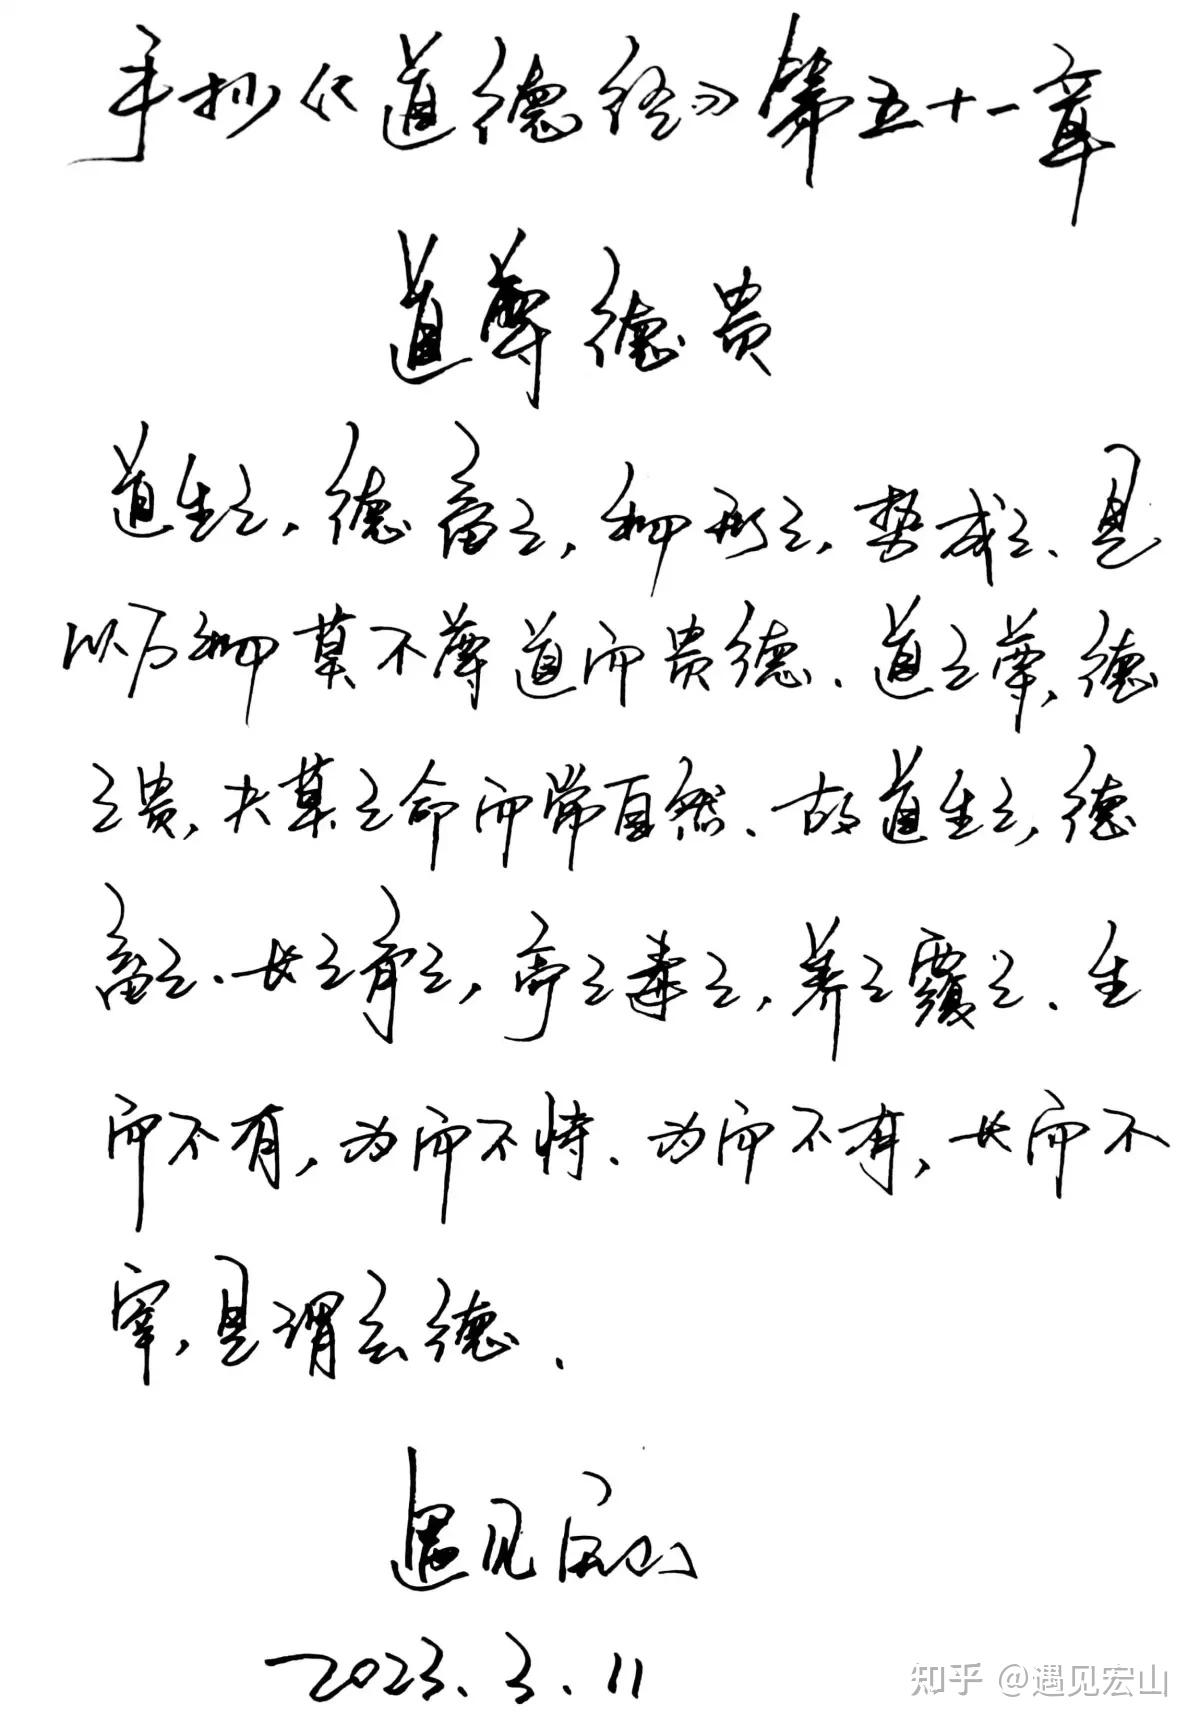 手抄《道德经》第五十一章
道尊德贵
道生之,德畜之,物形之,势成之、是
以万物莫不尊道而贵德、道之尊,德
之贵,夫莫之命而常自然、故道生之,德
畜之、长之育之,亭之毒之,养之覆之、生
而不有,为而不恃、为而不有,长而不
宰,是谓玄德、
遇见宏山
2023.3.11
知乎 @遇见宏山